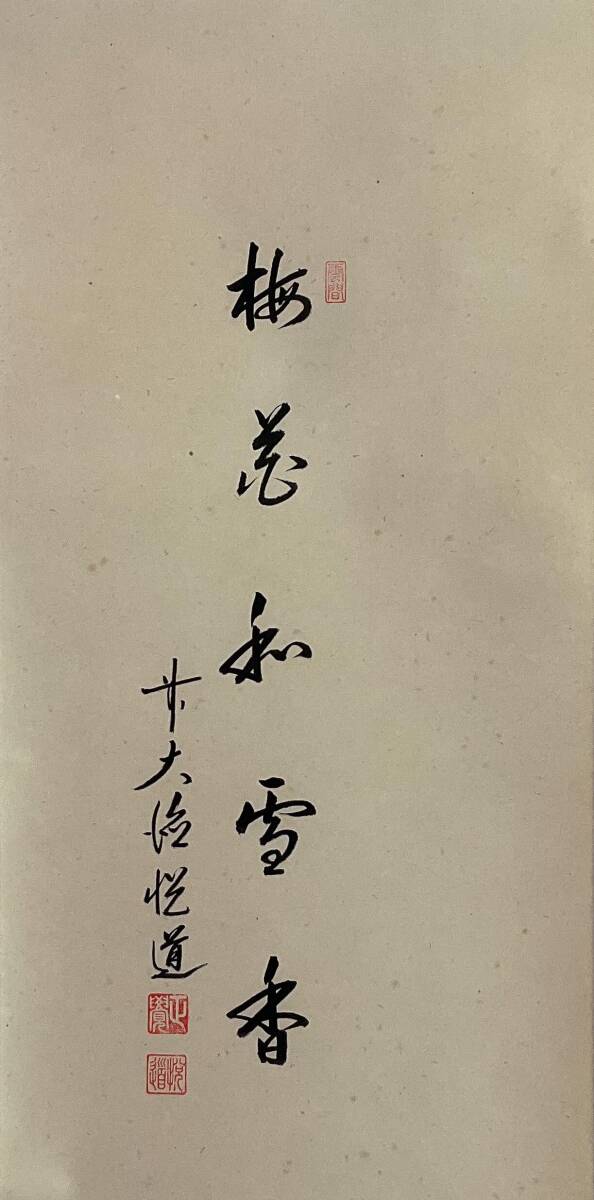 梅花和雪香
前大徳悦道